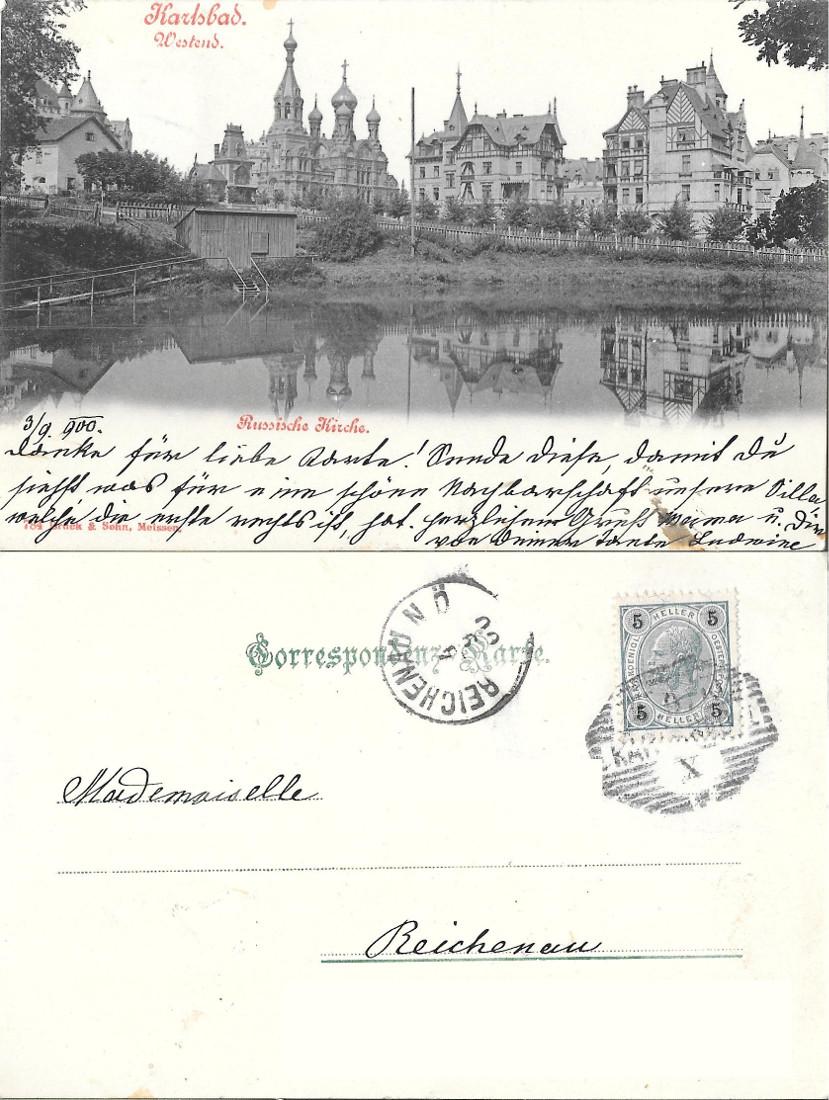 Karlsbad.
Westend.
3/9 900.
Russische Kirche.
Danke für liebe Karte! Sende diese, damit Du
siehst was für eine schöne Nachbarschaft unsere Villa
welche die erste rechts ist, hat. herzlichen Gruß Mama u. Dir
784 Brück & Sohn, Meissen.
von Deiner Tante Ludwine
Correspondenz-Karte.
REICHENAU N Ö
5 HELLER 5
KAIS. KOENIGL. OESTERR. POST
5 HELLER 5
X
Mademoiselle
Reichenau